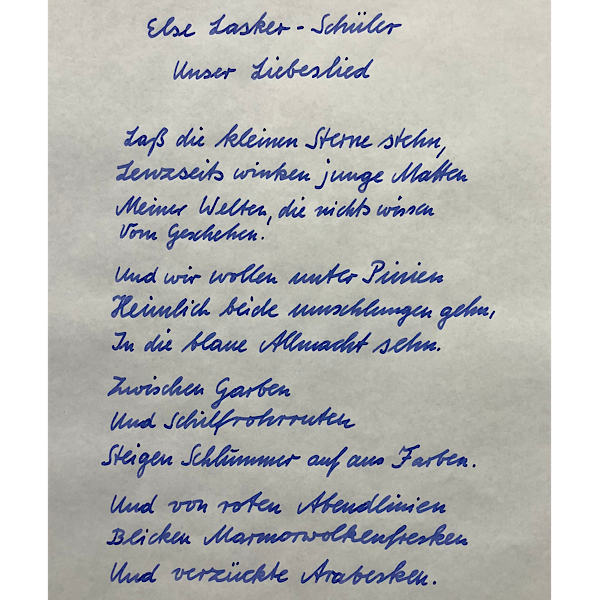 Else Lasker-Schüler
Unser Liebeslied
Laß die kleinen Sterne stehn,
Lenzseits winken junge Matten
Meiner Welten, die nichts wissen
Vom Geschehen.
Und wir wollen unter Pinien
Heimlich beide umschlungen gehn,
In die blaue Allmacht sehn.
Zwischen Garben
Und Schilfrohrruten
Steigen Schlummer auf aus Farben.
Und von roten Abendlinien
Blicken Marmorwolkenfresken
Und verzückte Arabesken.